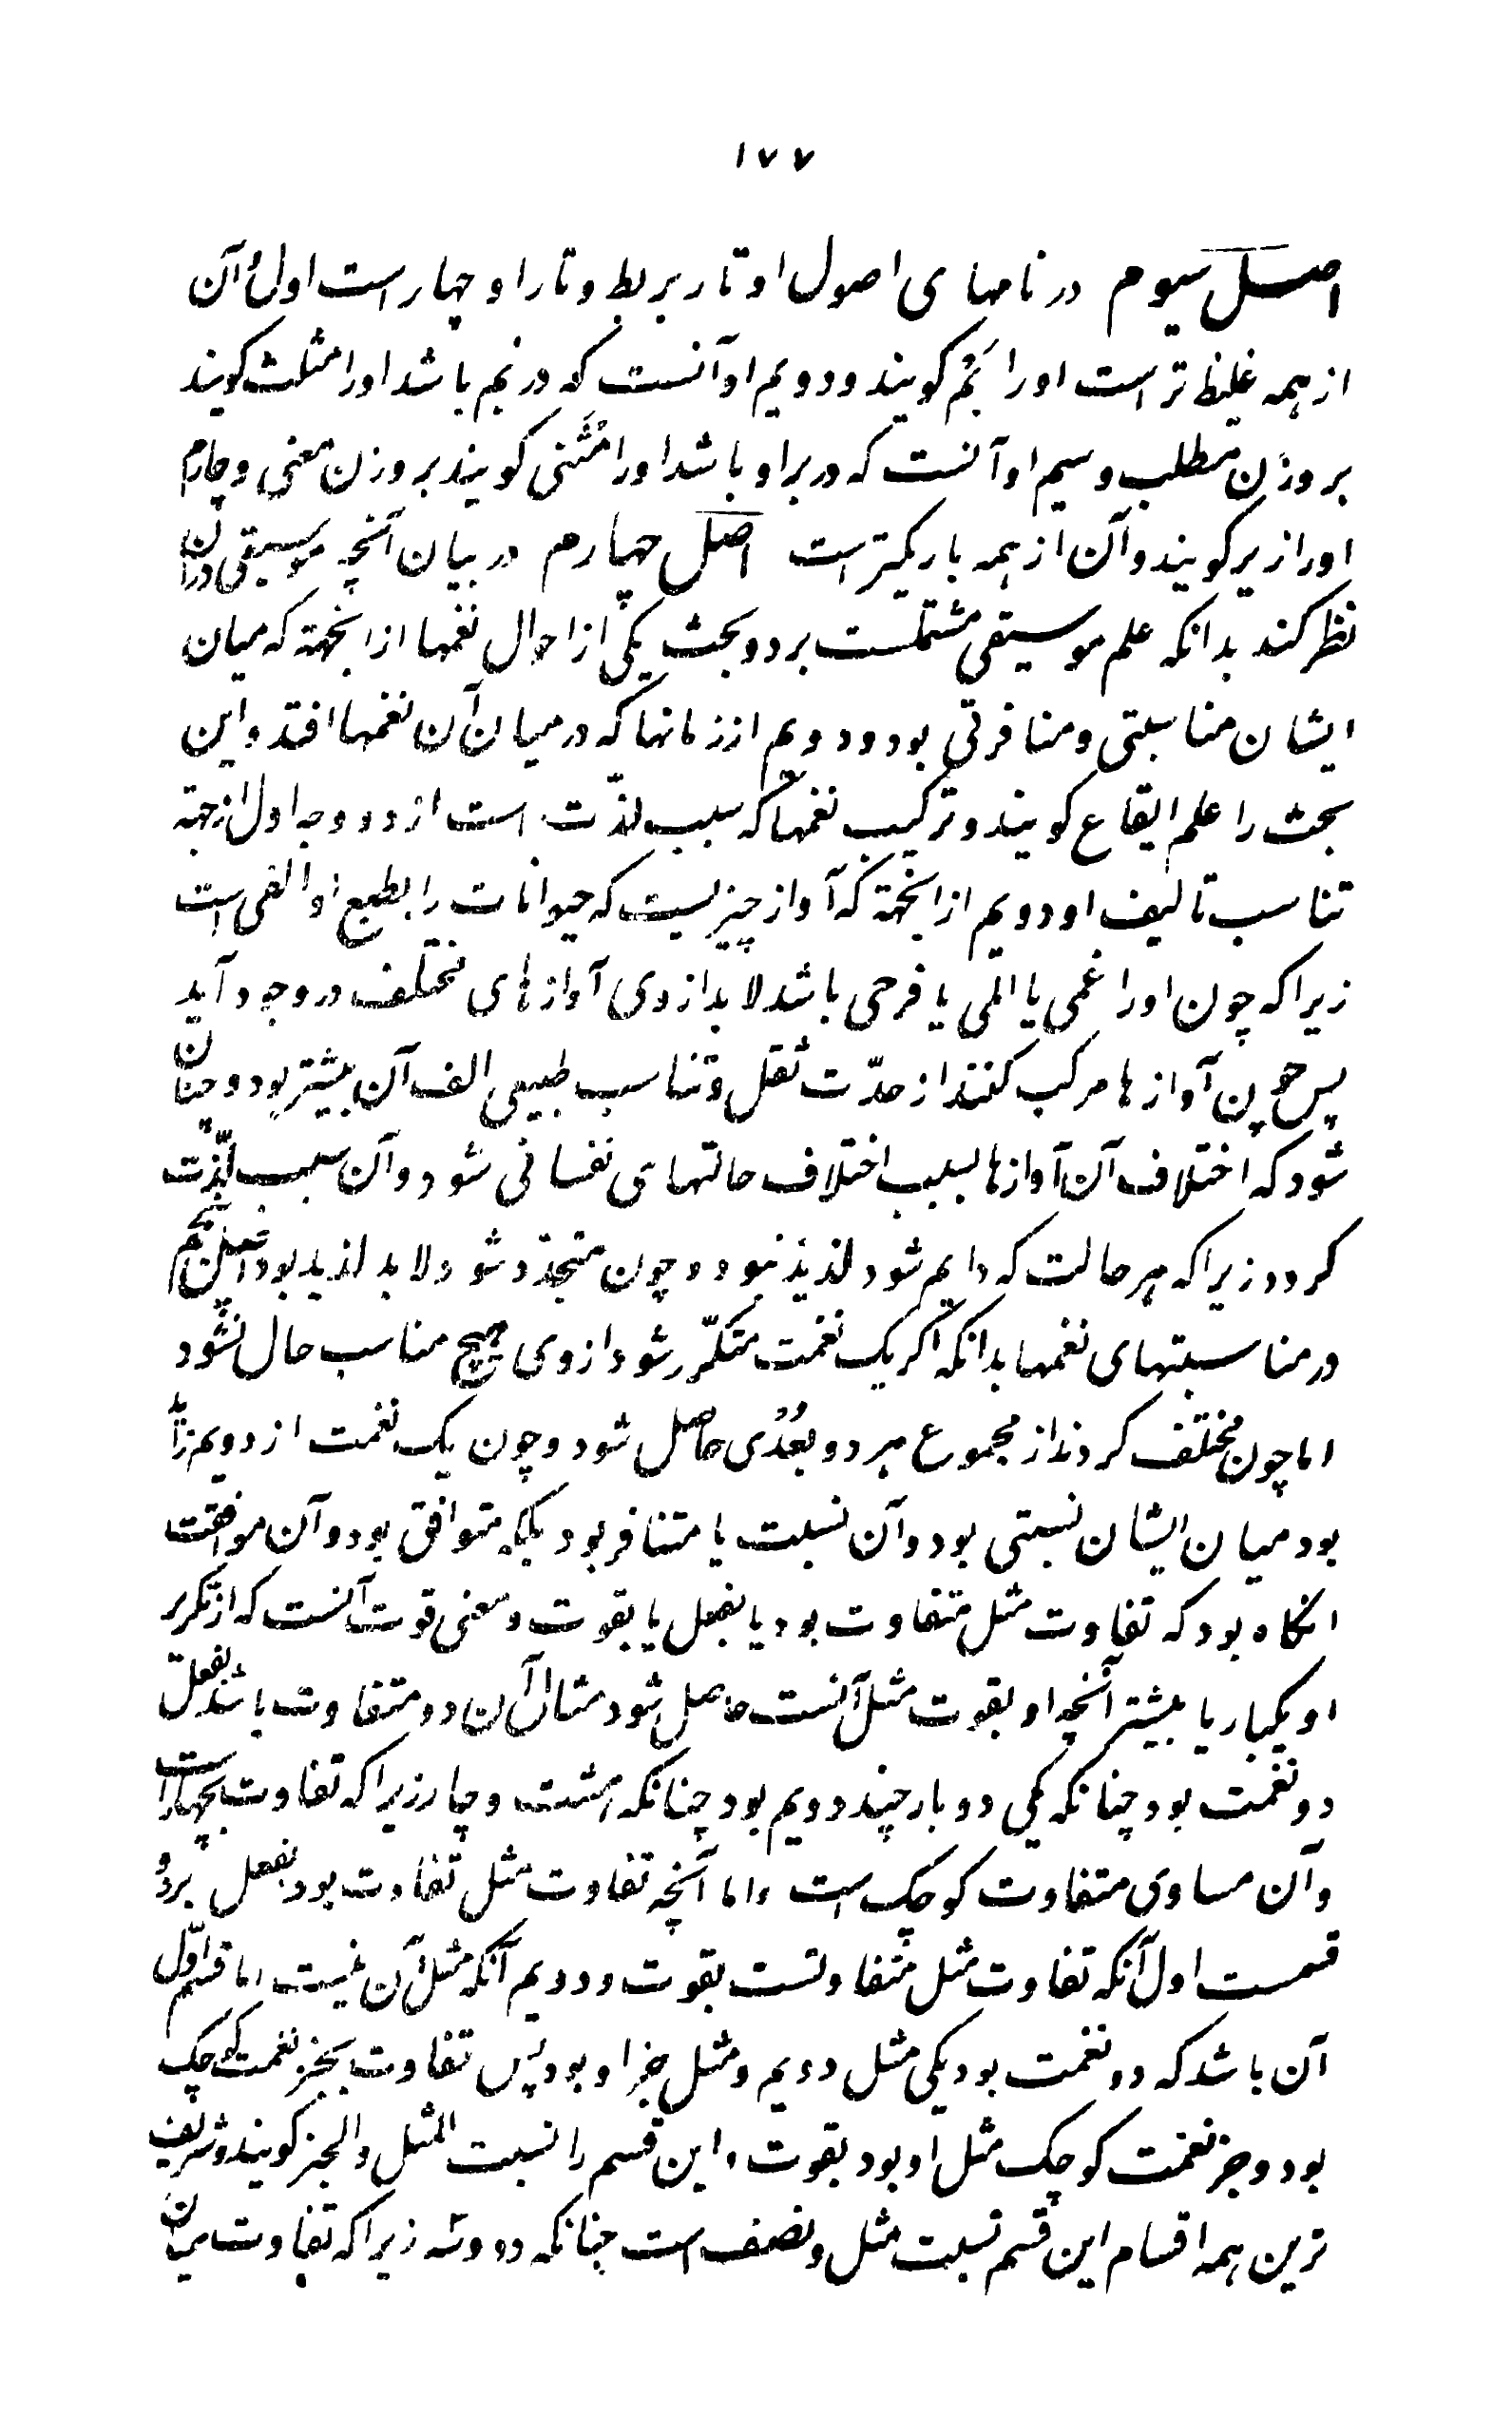 ۱۷۷
اصل سیوم در نامهای اصول اوتار بربط و تار او چهار است اول آن
از همه غلیظ تر است اورا بَم کویند و دویم او آنست که در بم باشد اورا مثلث کویند
بر وزن مطلب و سیم او آنست که در بر او باشد اورا مَثْنی کویند بر وزن معنی و چارم
اورا زیر کویند و آن از همه باریکتر است اصل چهارم در بیان آنچه موسیقی در آن
نظر کند بدانکه علم موسیقی مشتملست بر دو بحث یکی از احوال نغمها از انجهة که میان
ایشان مناسبتی و منافرتی بود و دویم از زمانها که در میان آن نغمها افتد و این
بحث را علم ایقاع کویند و ترکیب نغمها که سبب لذّت است از دو وجه اول از جهة
تناسب تالیف او دویم از انجهة که آواز چیزیست که حیوانات را بطبع او الفی است
زیرا که چون اورا غمی یا المی یا فرحی باشد لابد از وی آوازهای مختلف در وجود آید
پس چون آوازها مرکب کنند از حدّت ثقل و تناسب طبیعی الف آن بیشتر بود و چنان
شود که اختلاف آن آوازها بسبب اختلاف حالتهای نفسانی شود و آن سبب لذّت
کردد زیرا که هر حالت که دایم شود لذیذ نبود و چون متجدّد شود لابد لذیذ بود اصل پنجم
در مناسبتهای نغمها بدانکه اکر یک نغمت متکرّر شود از وی هیچ مناسب حال نشود
اما چون مختلف کردند از مجموع هر دو بُعْدی حاصل شود و چون یک نغمت از دویم زاید
بود میان ایشان نسبتی بود و آن نسبت یا متنافر بود بلکه متوافق بود و آن موافقت
انکاه بود که تفاوت مثل متفاوت بود یا بفعل یا بقوت و معنی قوت آنست که از تکریر
او یکبار یا بیشتر آنچه او بقوت مثل آنست حاصل شود مثال آن دو متفاوت باشد بفعل
دو نغمت بود چنانکه یکی دو بار چند دویم بود چنانکه هشت و چار زیرا که تفاوت بچهار است
و آن مساوی متفاوت کوچک است و اما آنچه تفاوت مثل تفاوت بود بفعل بر دو
قسمست اول آنکه تفاوت مثل متفاوتست بقوت و دویم آنکه مثل آن نیست اما قسم اوّل
آن باشد که دو نغمت بود یکی مثل دویم و مثل جزا و بود پس تفاوت بجز نغمت کوچک
بود و جز نغمت کوچک مثل او بود بقوت و این قسم را نسبت المثل والجز کویند و شریف
ترین همه اقسام این قسم نسبت مثل و نصف است چنانکه دو و سه زیرا که تفاوت میان